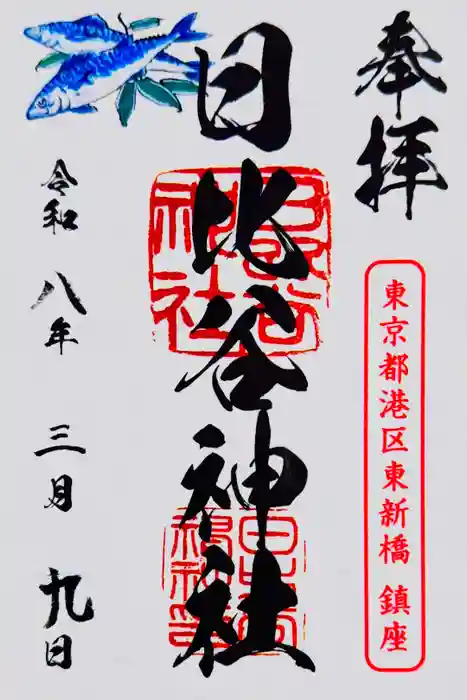 奉拝
東京都港区東新橋 鎮座
日比谷神社
令和 八年 三月 九日